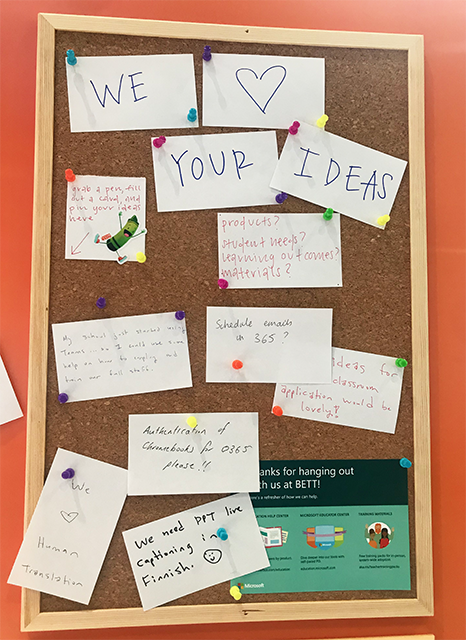 WE
YOUR
IDEAS
grab a pen, fill
out a card, and
pin your ideas
here
products?
student needs?
learning outcomes?
materials?
My school just started using
Teams... so I could use some
help on how to employ and
train our full staff.
Schedule emails
in 365?
ideas for
classroom
application would be
lovely!
Authentication of
Chromebooks for O365
please!!!
We
Human
Translation
We need PPT live
captioning in
Finnish.
hanks for hanging out
th us at BETT!
re's a refresher of how we can help.
HELP CENTER
MICROSOFT EDUCATOR CENTER
TRAINING MATERIALS
education.microsoft.com
Microsoft